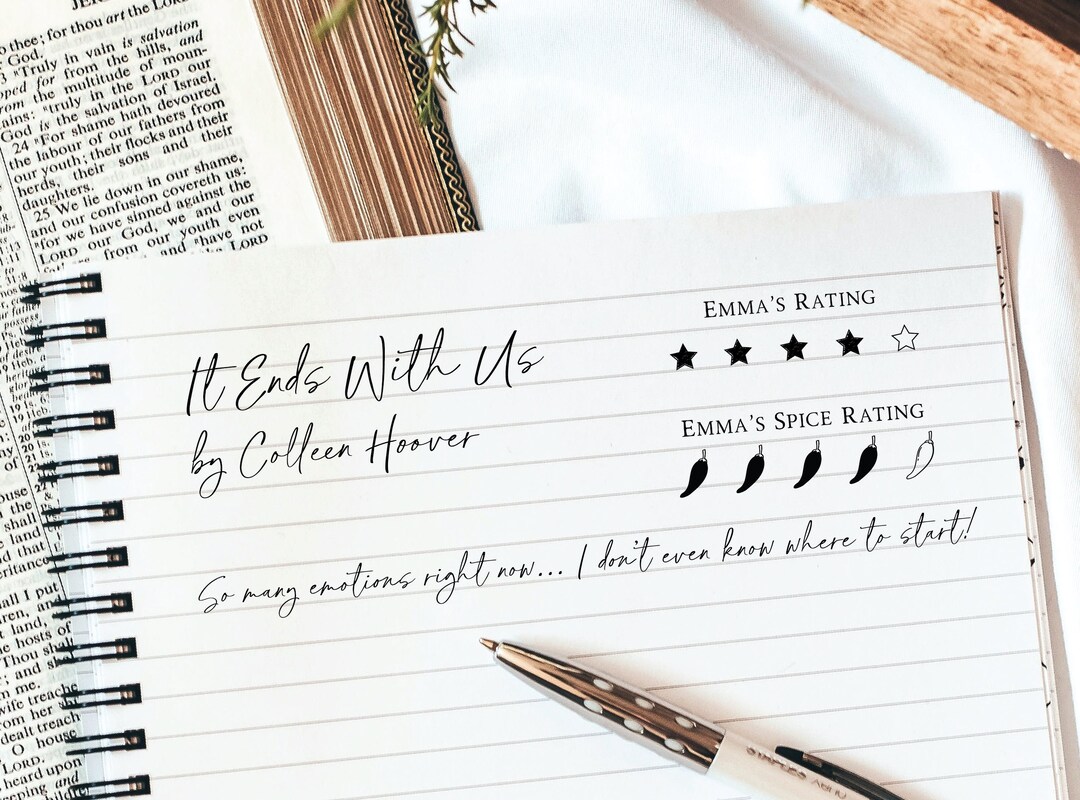 o thee; for thou art the LORD
God.
3 "Truly in vain is salvation
oped for from the hills, and
rom the multitude of moun-
ains: "truly in the LORD our
God is the salvation of Israel.
24 "For shame hath devoured
the labour of our fathers from
our youth; their flocks and their
herds, their sons and their
daughters.
25 We lie down in our shame,
and our confusion covereth us:
"for we have sinned against the
LORD our God, we and our
from our youth even
and "have not
LORD
house
shall
land
nd that
eritance
all I put
ren, and
t land,
he hosts of
Thou shall
; and shal
m me.
wife treache
rom her
dealt treach
O house
LORD.
heard upon
eeping and
childre
It Ends With Us
by Colleen Hoover
EMMA'S RATING
EMMA'S SPICE RATING
So many emotions right now... I don't even know where to start!